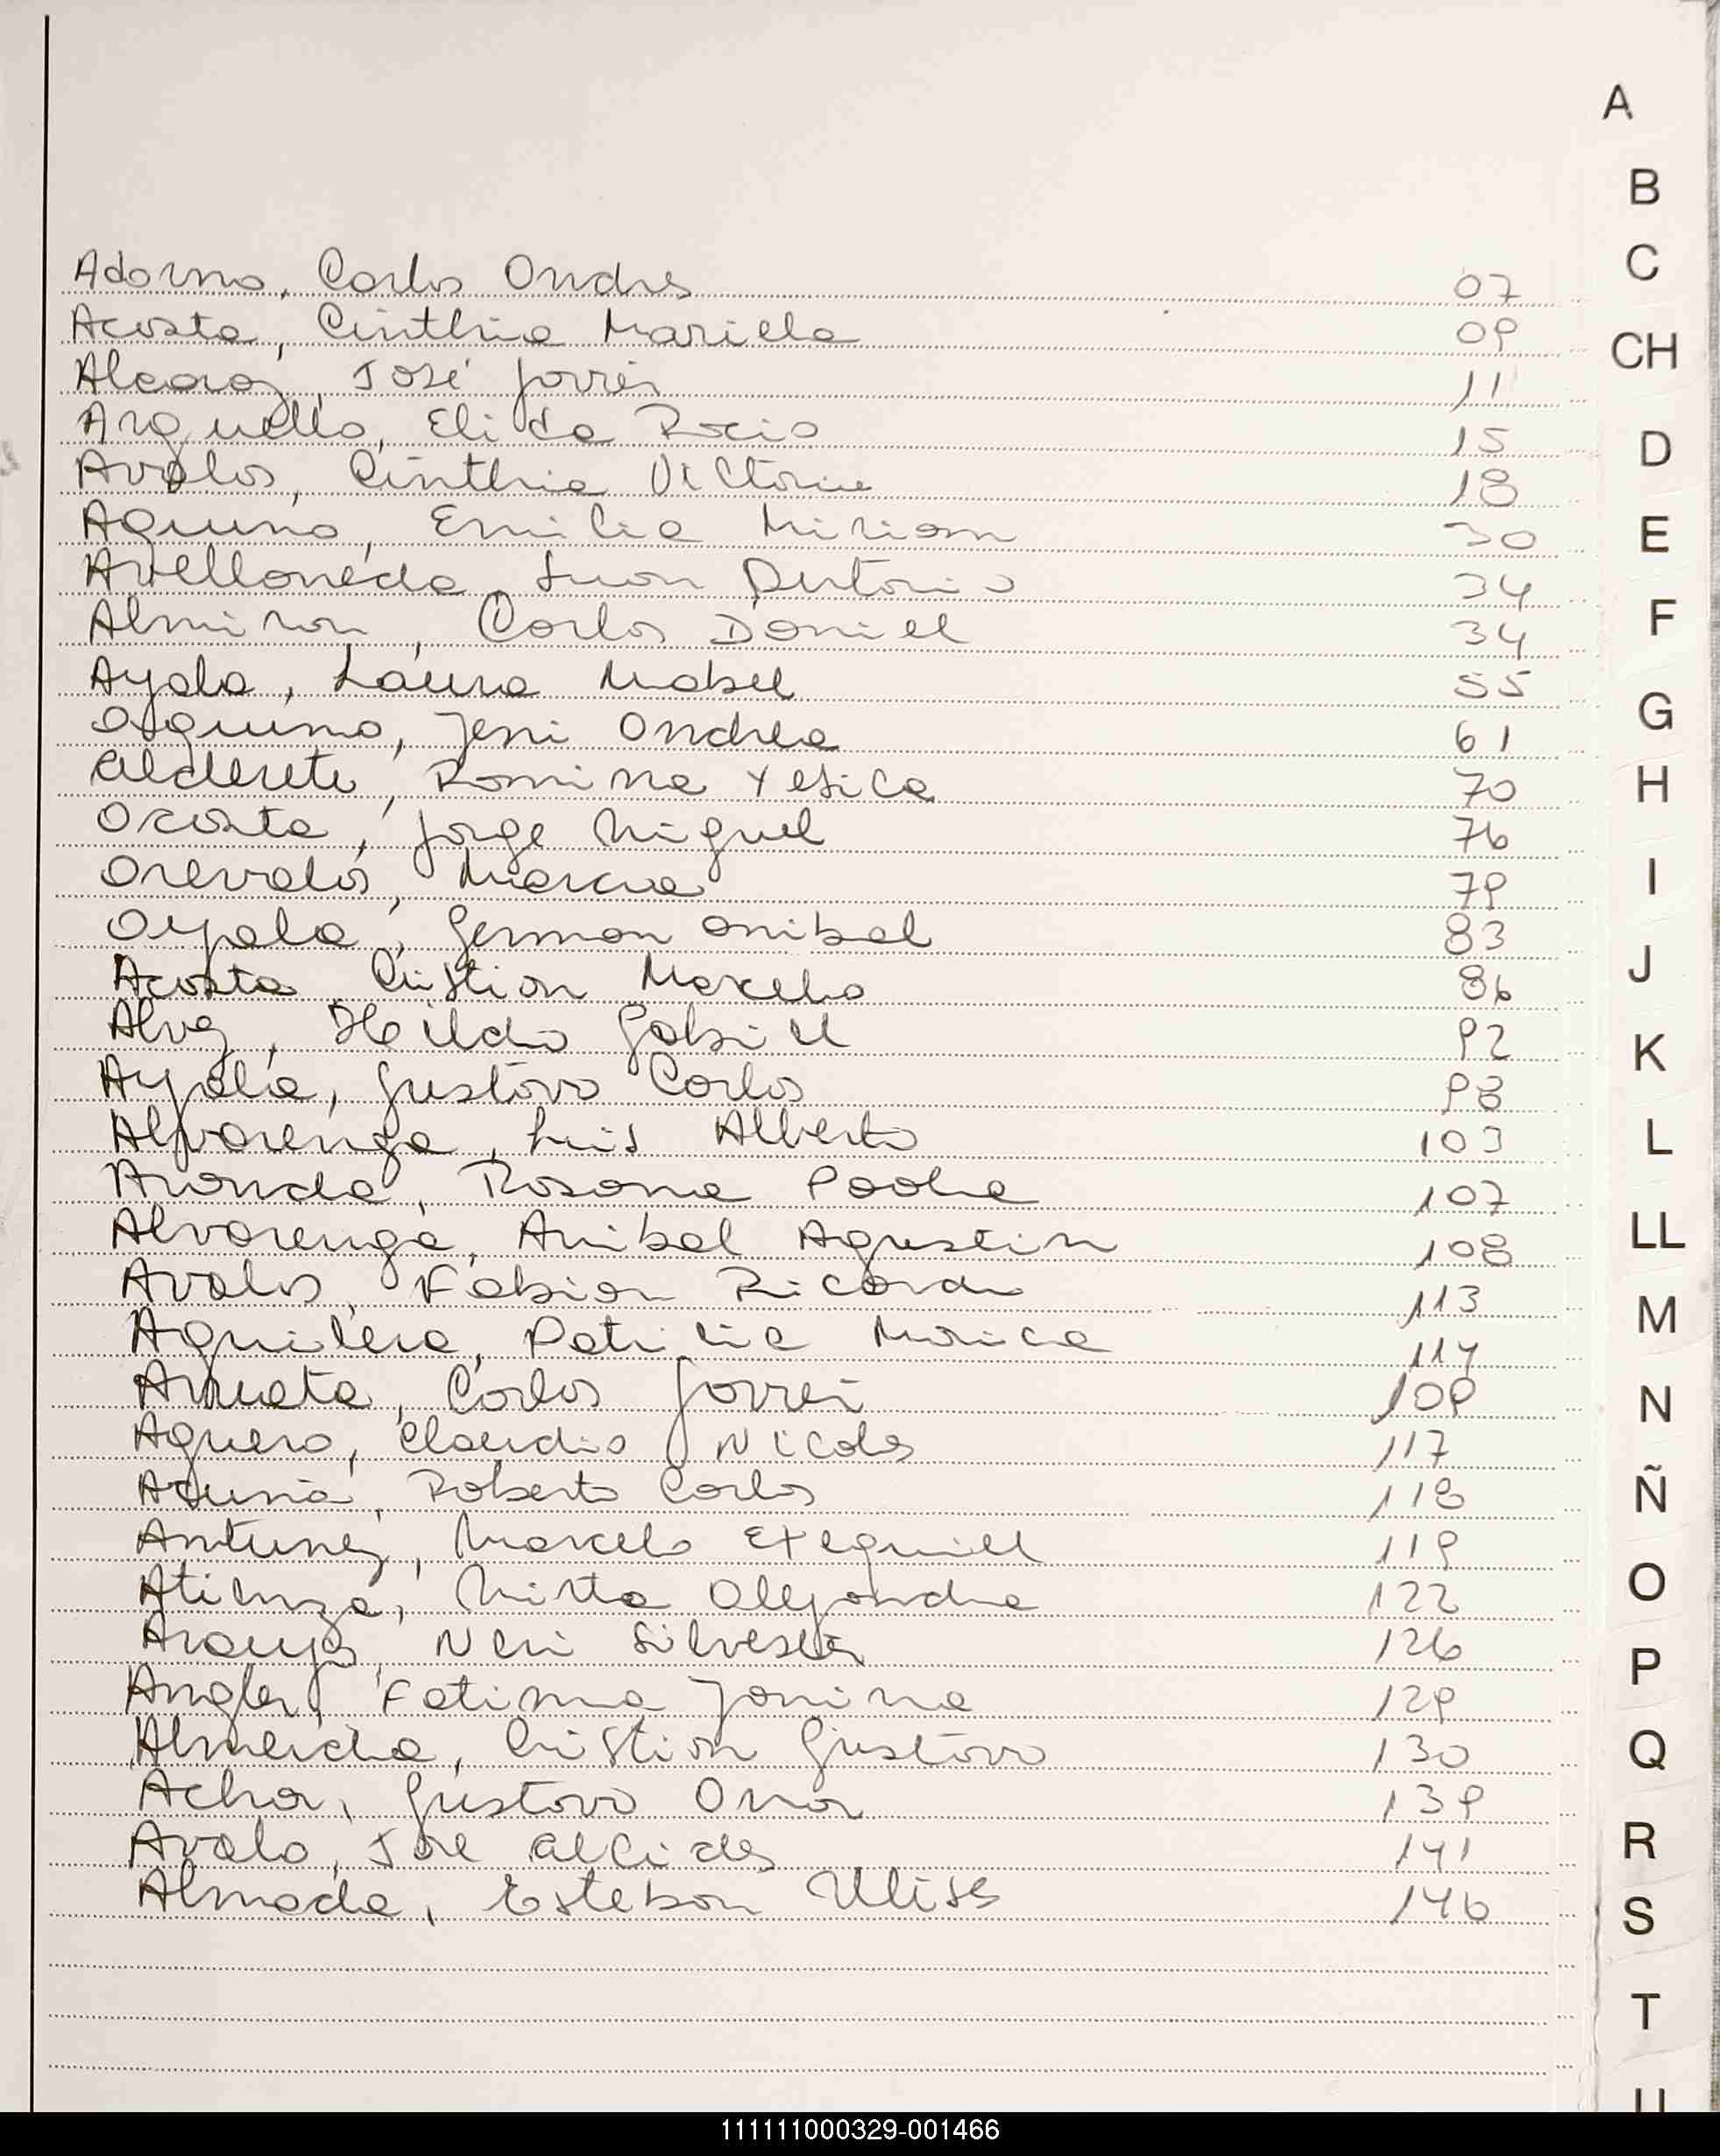 Adorno, Carlos Andres 07
Acosta, Cinthia Mariela 09
Alcaraz, José Javier 11
Arguello, Elida Rocio 15
Avalos, Cinthia Victoria 18
Aquino, Emilia Miriam 30
Avellaneda, Juan Antonio 34
Almiron, Carlos Daniel 34
Ayala, Laura Mabel 55
Aquino, Jeni Andrea 61
Alderete, Romina Yesica 70
Acosta, Jorge Miguel 76
Arevalos, Marcia 79
Ayala, German Anibal 83
Acosta Cristian Marcelo 86
Alvez, Hildo Gabriel 92
Ayala, Gustavo Carlos 98
Alvarenga, Luis Alberto 103
Aranda, Rosana Paola 107
Alvarenga, Anibal Agustin 108
Avalos, Fabian Ricardo 113
Aguilera, Patricia Monica 114
Arrueta, Carlos Javier 109
Aguero, Claudio Nicolas 117
Acuña, Roberto Carlos 118
Antunez, Marcelo Exequiel 119
Mirta Alejandra 122
Araujo, Neri Silvestre 126
Angler, Fatima Janina 129
Almeida, Cristian Gustavo 130
Achar, Gustavo Omar 139
Avalo, Jose Alcides 141
Almada, Esteban Ulises 146
A
B
C
CH
D
E
F
G
H
I
J
K
L
LL
M
N
Ñ
O
P
Q
R
S
T
U
111111000329-001466